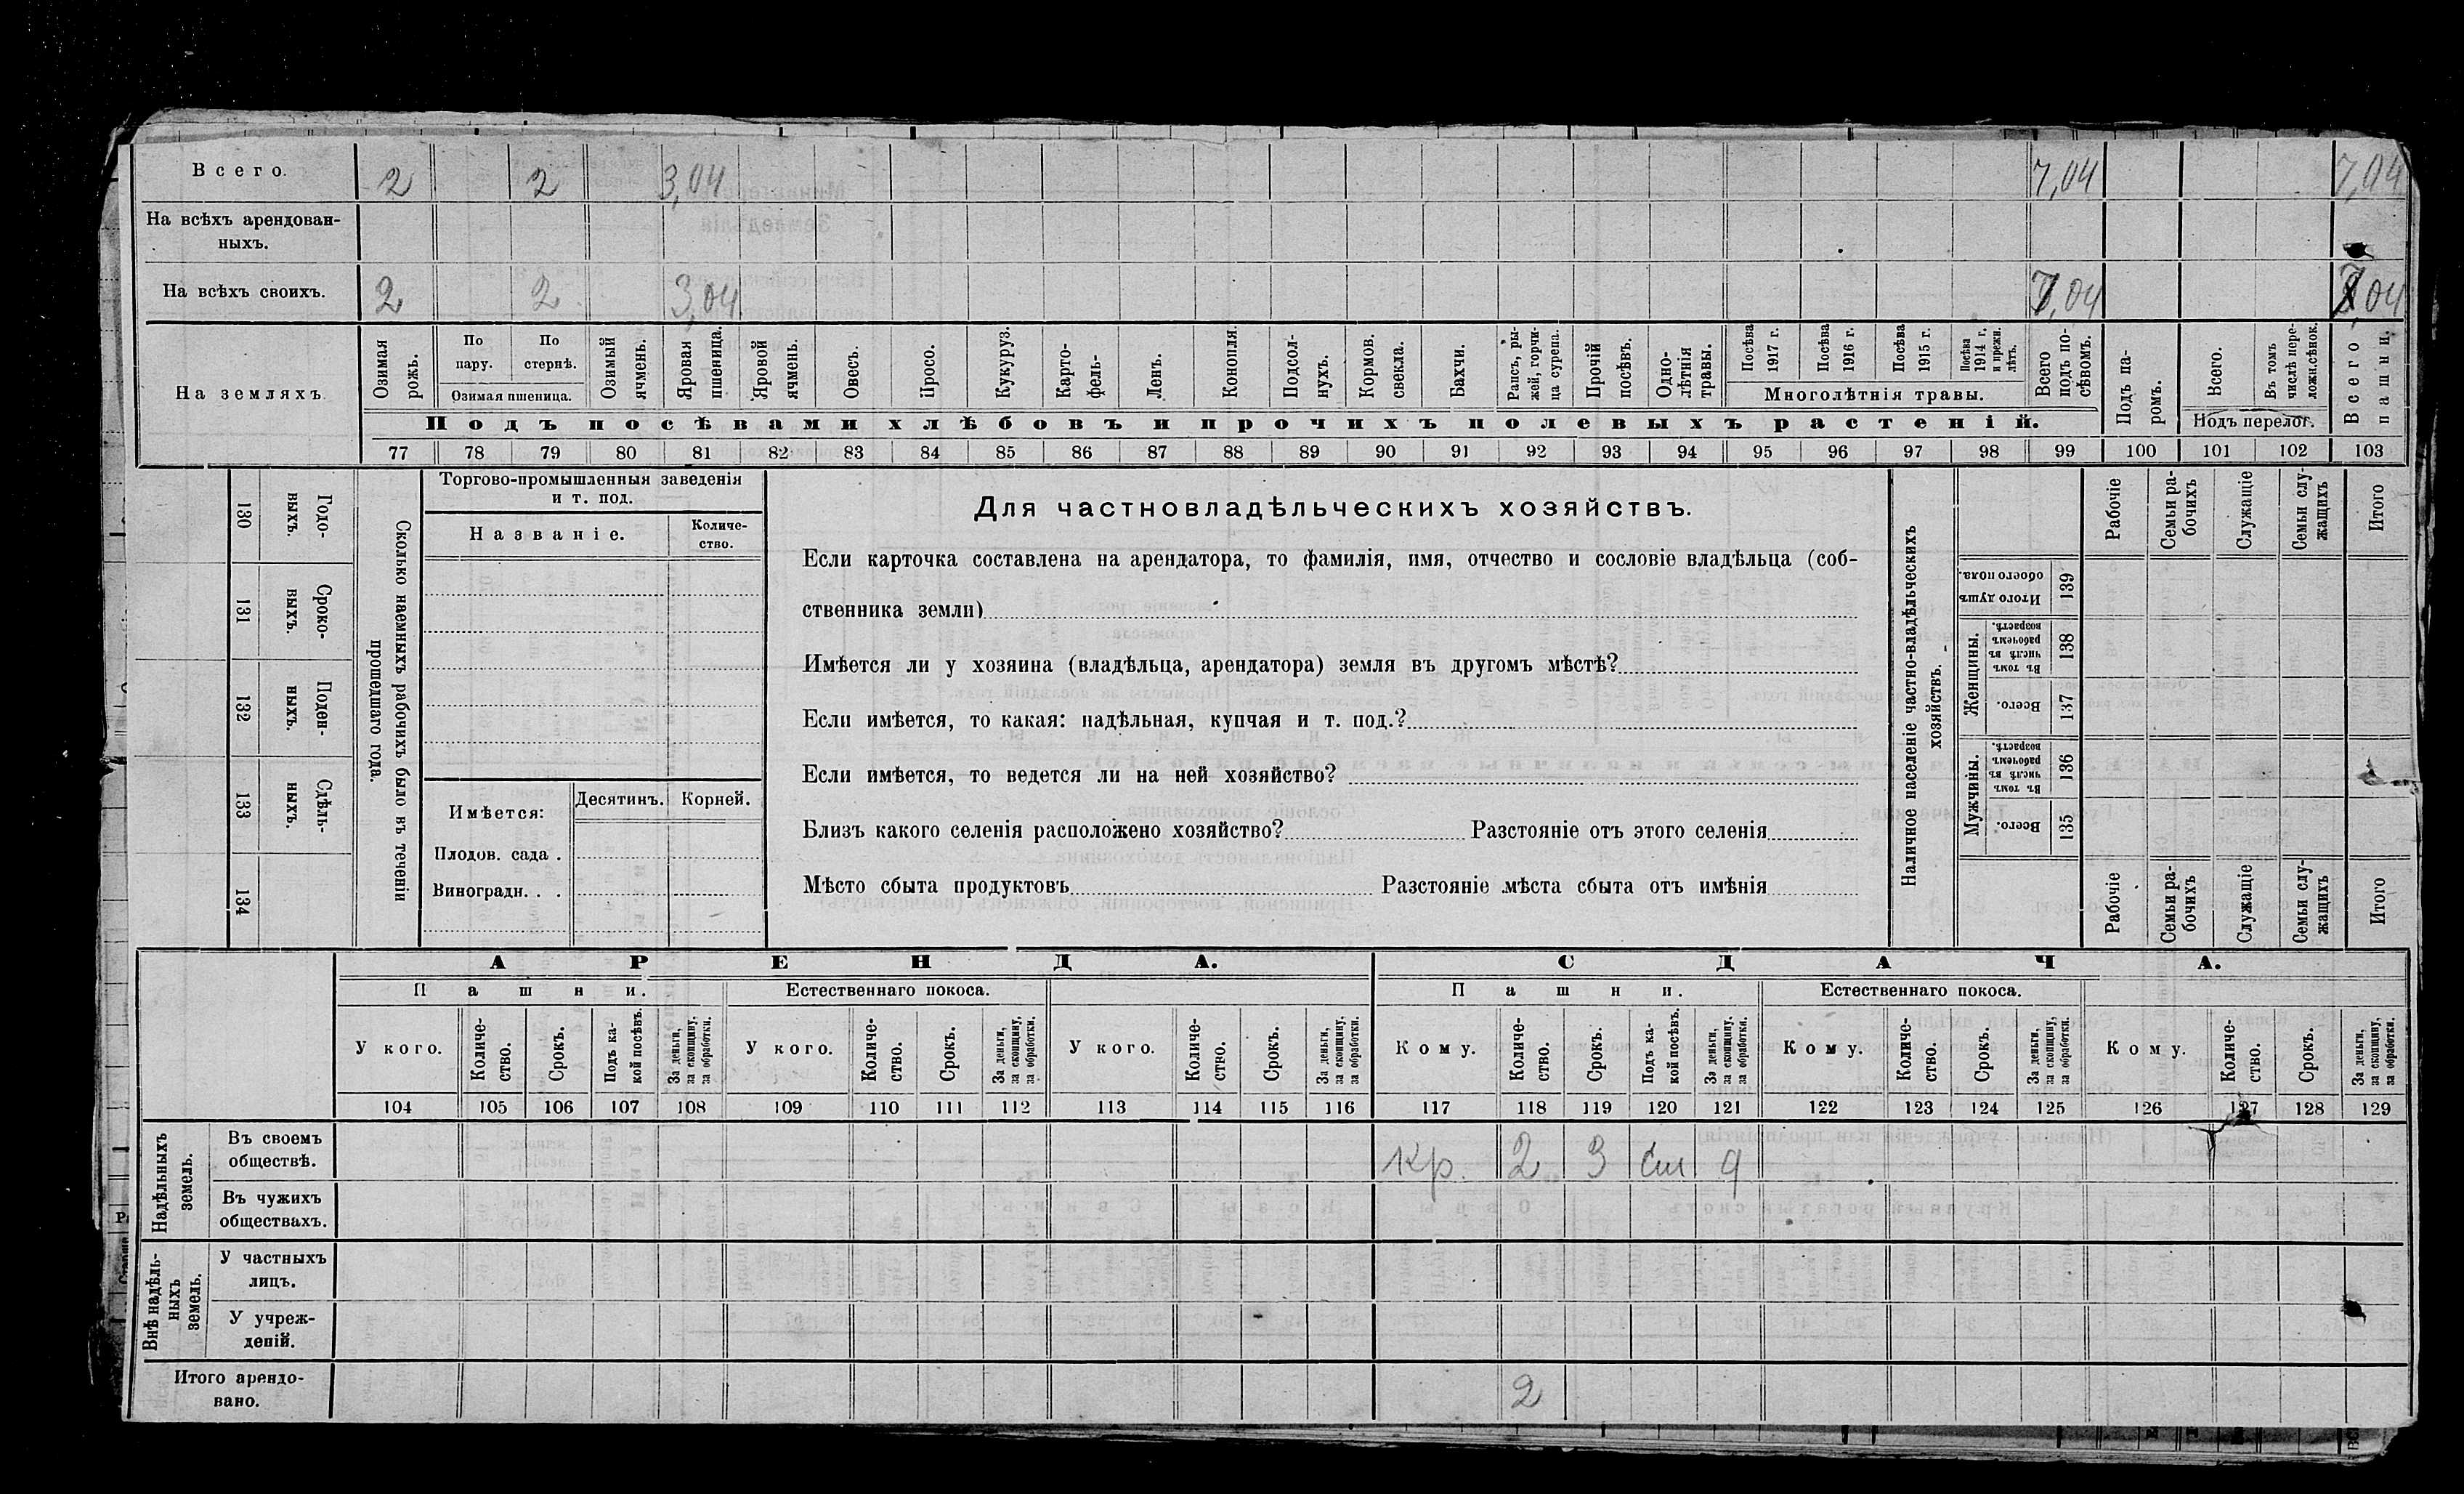 Всего. 2 2 3,04 7,04 7,04
На всѣхъ арендован-
ныхъ.
На всѣхъ своихъ. 2 2 3,04 7,04 04
На земляхъ
Озимая рожь.
По пару.
По стернѣ.
Озимая пшеница.
Озимый ячмень.
Яровая пшеница.
Яровой ячмень.
Овесъ.
Просо.
Кукуруз.
Карто-
фель-
Ленъ.
Конопля.
Подсол-
нухъ.
Кормов. свекла.
Бахчи.
Рапсъ, ры-
жей, горчи-
ца сурепа.
Прочій посѣвъ.
Одно-
лѣтнія травы.
Посѣва 1917 г.
Посѣва 1916 г.
Посѣва 1915 г.
Посѣва 1914 г. и прежн. лѣтъ.
Многолѣтнія травы.
Всего подъ по-
сѣвомъ.
Подъ посѣвами хлѣбовъ и прочихъ полевыхъ растеній.
Подъ па-
ромъ.
Всего.
Въ томъ числѣ пере-
ложн. сѣнок.
Подъ перелог.
Всего пашни.
77 78 79 80 81 82 83 84 85 86 87 88 89 90 91 92 93 94 95 96 97 98 99 100 101 102 103
130 Годо-
выхъ.
131 Сроко-
выхъ.
132 Поден-
ныхъ.
133 Сдѣль-
ныхъ.
134
Сколько наемныхъ рабочихъ было въ теченіи
прошедшаго года.
Торгово-промышленныя заведенія
и т. под.
Названіе. Количе-
ство.
Имѣется: Десятинъ. Корней.
Плодов. сада .
Виноградн. . .
Для частновладѣльческихъ хозяйствъ.
Если карточка составлена на арендатора, то фамилія, имя, отчество и сословіе владѣльца (соб-
ственника земли)
Имѣется ли у хозяина (владѣльца, арендатора) земля въ другомъ мѣстѣ?
Если имѣется, то какая: надѣльная, купчая и т. под.?
Если имѣется, то ведется ли на ней хозяйство?
Близъ какого селенія расположено хозяйство? Разстояніе отъ этого селенія
Мѣсто сбыта продуктовъ Разстояніе мѣста сбыта отъ имѣнія
Наличное населеніе частно-владѣльческихъ
хозяйствъ.
Рабочіе
Семьи ра-
бочихъ
Служащіе
Семьи слу-
жащихъ
Итого
Итого душъ обоего пола. 139
Женщины.
Въ томъ числѣ въ рабочемъ возрастѣ. 138
Всего. 137
Мужчины.
Въ томъ числѣ въ рабочемъ возрастѣ. 136
Всего. 135
Рабочіе
Семьи ра-
бочихъ
Служащіе
Семьи слу-
жащихъ
Итого
АРЕНДА. СДАЧА.
Пашни. Естественнаго покоса. Пашни. Естественнаго покоса.
У кого.
Количе-
ство.
Срокъ.
Подъ ка-
кой посѣвъ.
За деньги, за скопщину, за обработки.
У кого.
Количе-
ство.
Срокъ.
За деньги, за скопщину, за обработки.
У кого.
Количе-
ство.
Срокъ.
За деньги, за скопщину, за обработки.
Кому.
Количе-
ство.
Срокъ.
Подъ ка-
кой посѣвъ.
За деньги, за скопщину, за обработки.
Кому.
Количе-
ство.
Срокъ.
За деньги, за скопщину, за обработки.
Кому.
Количе-
ство.
Срокъ.
За деньги, за скопщину, за обработки.
104 105 106 107 108 109 110 111 112 113 114 115 116 117 118 119 120 121 122 123 124 125 126 127 128 129
Надѣльныхъ земель.
Въ своемъ
обществѣ. кр. 2 3 д
Въ чужихъ
обществахъ.
Внѣ надѣль-
ныхъ
земель.
У частныхъ
лицъ.
У учреж-
деній.
Итого арендо-
вано. 2